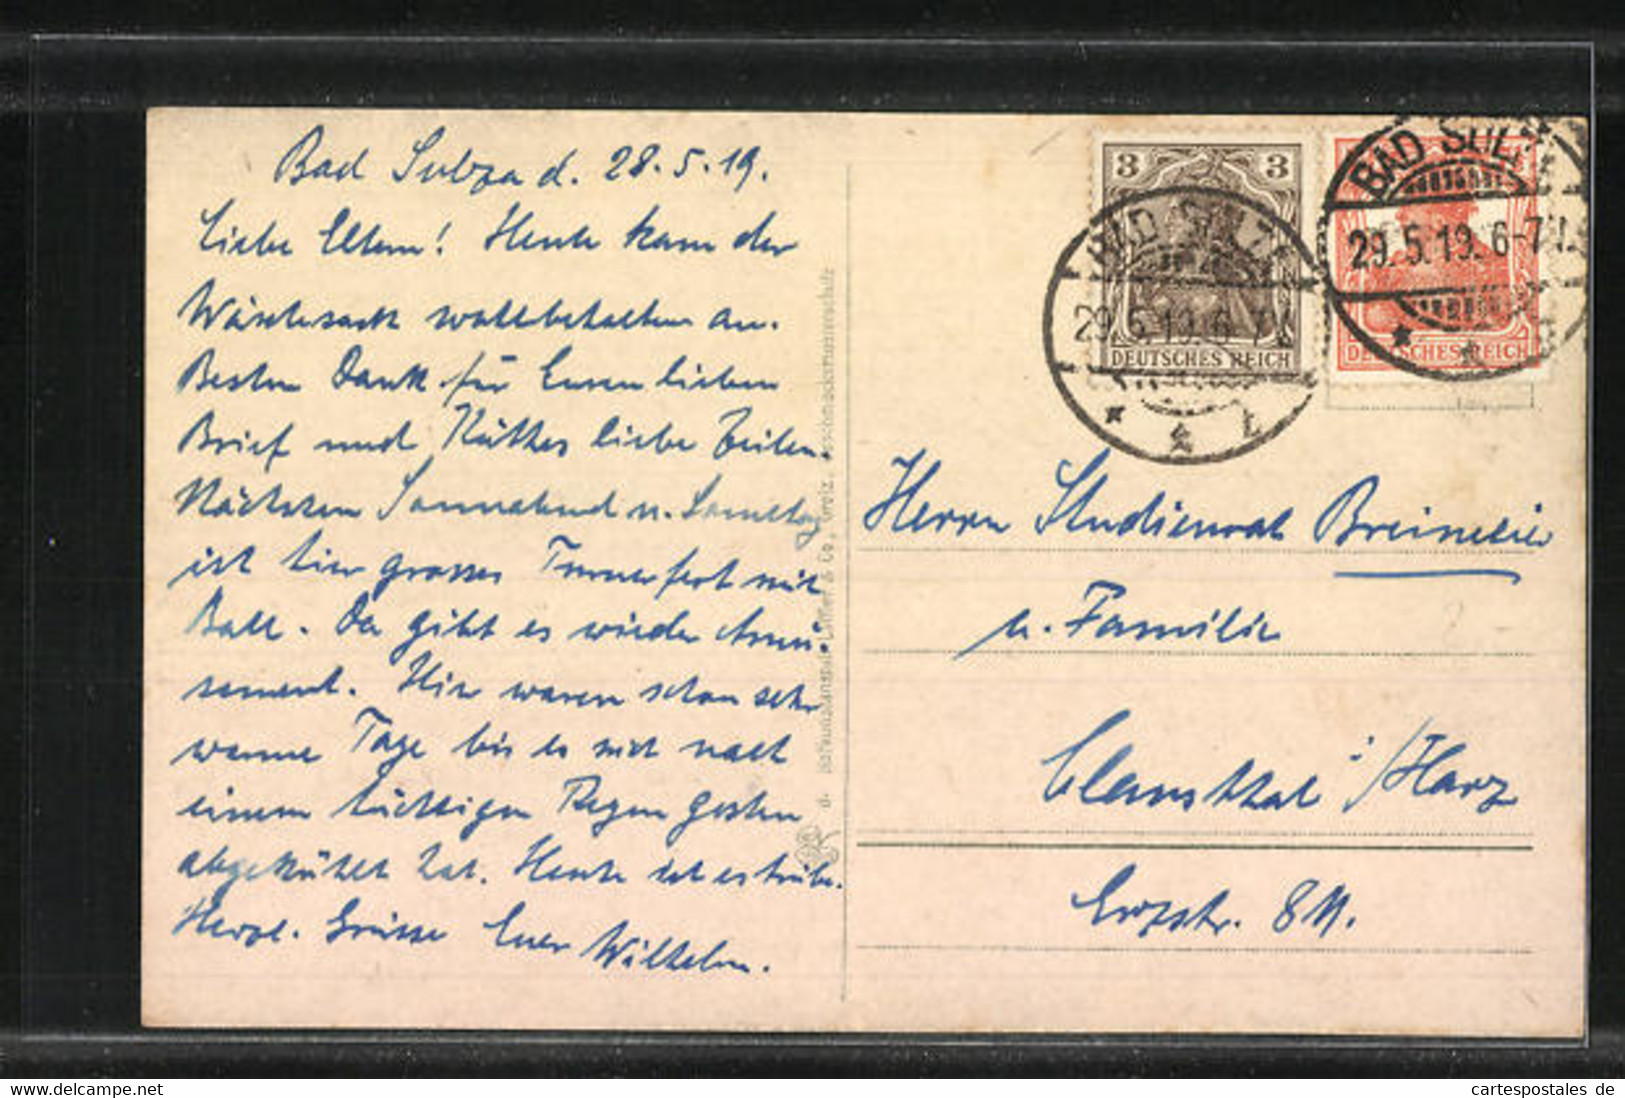 Bad Sulza d. 28.5.19.
Liebe Eltern! Heute kam der
Wäschesack wohlbehalten an.
Besten Dank für Euren lieben
Brief und Käthes liebe Zeilen.
Nächsten Sonnabend u. Sonntag
ist hier grosses Turnerfest mit
Ball. Da gibt es wieder Amü-
sement. Hier waren schon sehr
warme Tage bis es sich nach
einem tüchtigen Regen gestern
abgekühlt hat. Heute ist es trübe.
Herzl. Grüsse Euer Wilhelm.
3 3
DEUTSCHES REICH
BAD SULZA
29.5.19. 6-7
DEUTSCHES REICH
BAD SULZA
29.5.19. 6-7
Herrn Studienrat
u. Familie
Clausthal i/Harz
Erzstr.
Löffler & Co., Greiz.
cartespostales de